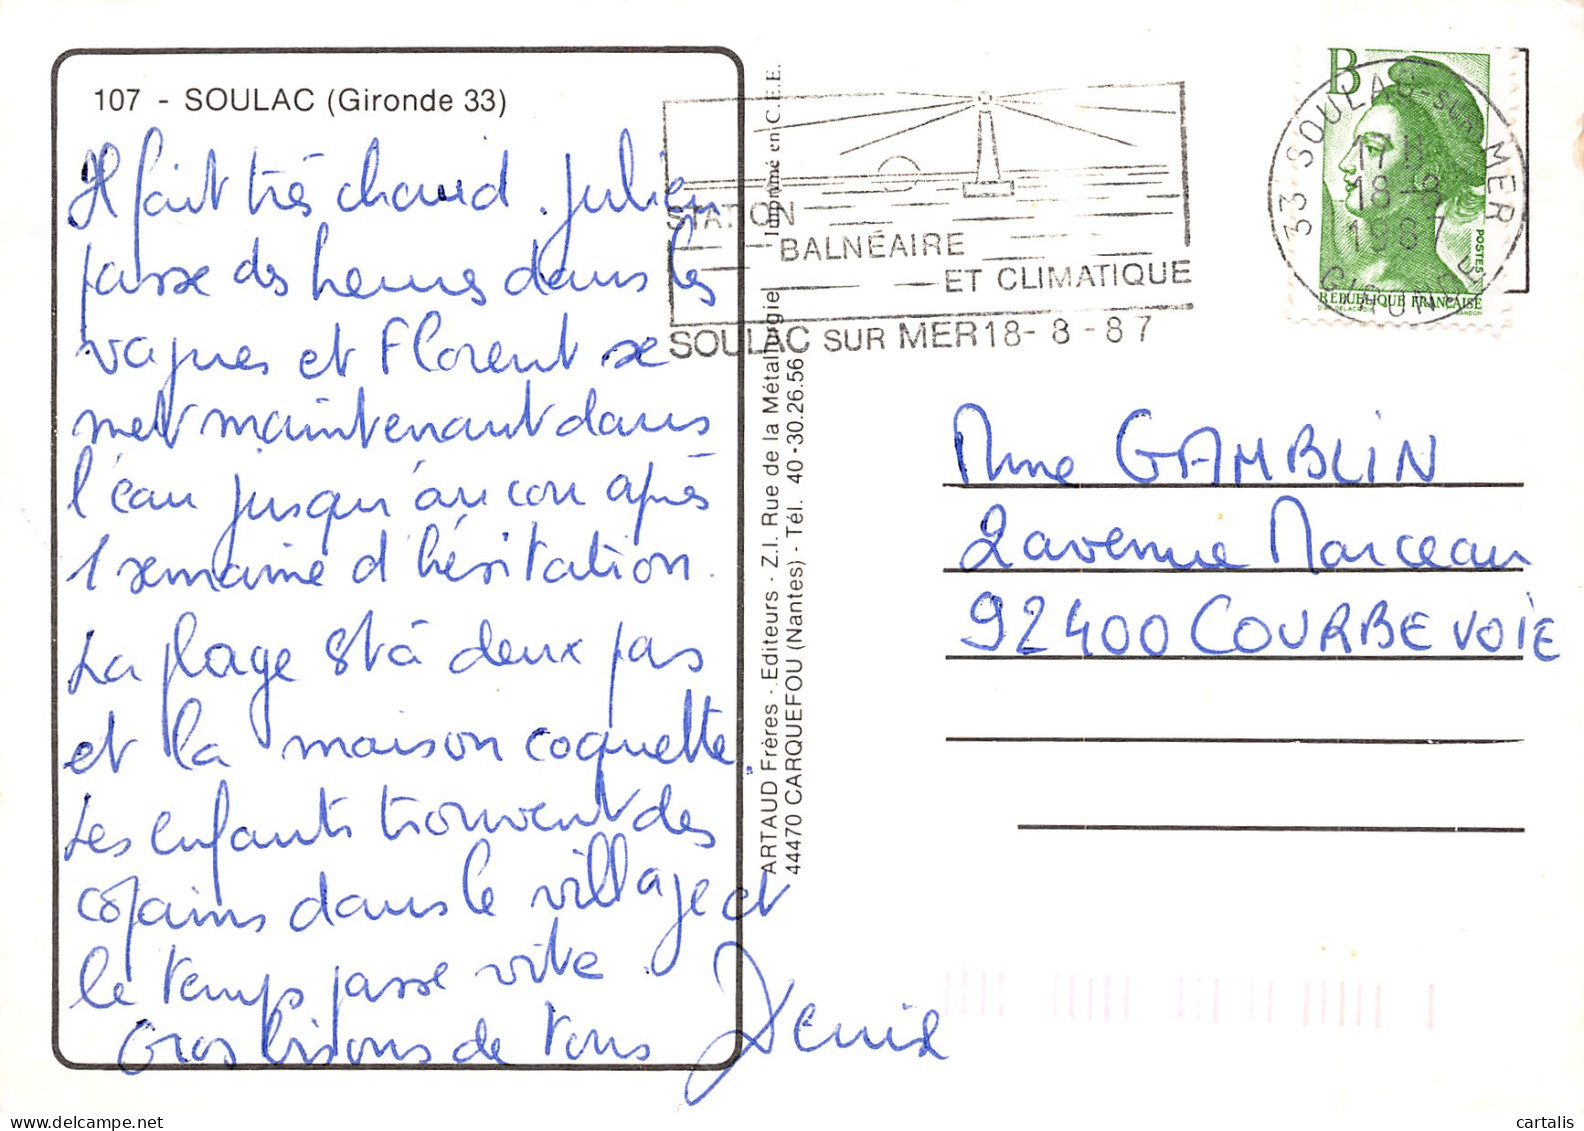 107 - SOULAC (Gironde 33)
Il fait très chaud. Julien
passe des heures dans les
vagues et Florent se
met maintenant dans
l'eau jusqu'au cou après
1 semaine d'hésitation.
La plage est à deux pas
et la maison coquette.
Les enfants trouvent des
copains dans le village et
le temps passe vite.
Gros bisous de tous
Denise
ARTAUD Frères - Editeurs - Z.I. Rue de la Métallurgie Imprimé en C.E.E.
44470 CARQUEFOU (Nantes) - Tél. 40-30.26.56
STATION
BALNÉAIRE
ET CLIMATIQUE
SOULAC SUR MER 18-8-87
B
33 SOULAC-SUR-MER
17H
18-8
1987
GIRONDE
POSTES
RÉPUBLIQUE FRANÇAISE
D'AP. DELACROIX GANDON
Mme GAMBLIN
2 avenue Marceau
92400 COURBEVOIE
cartalis